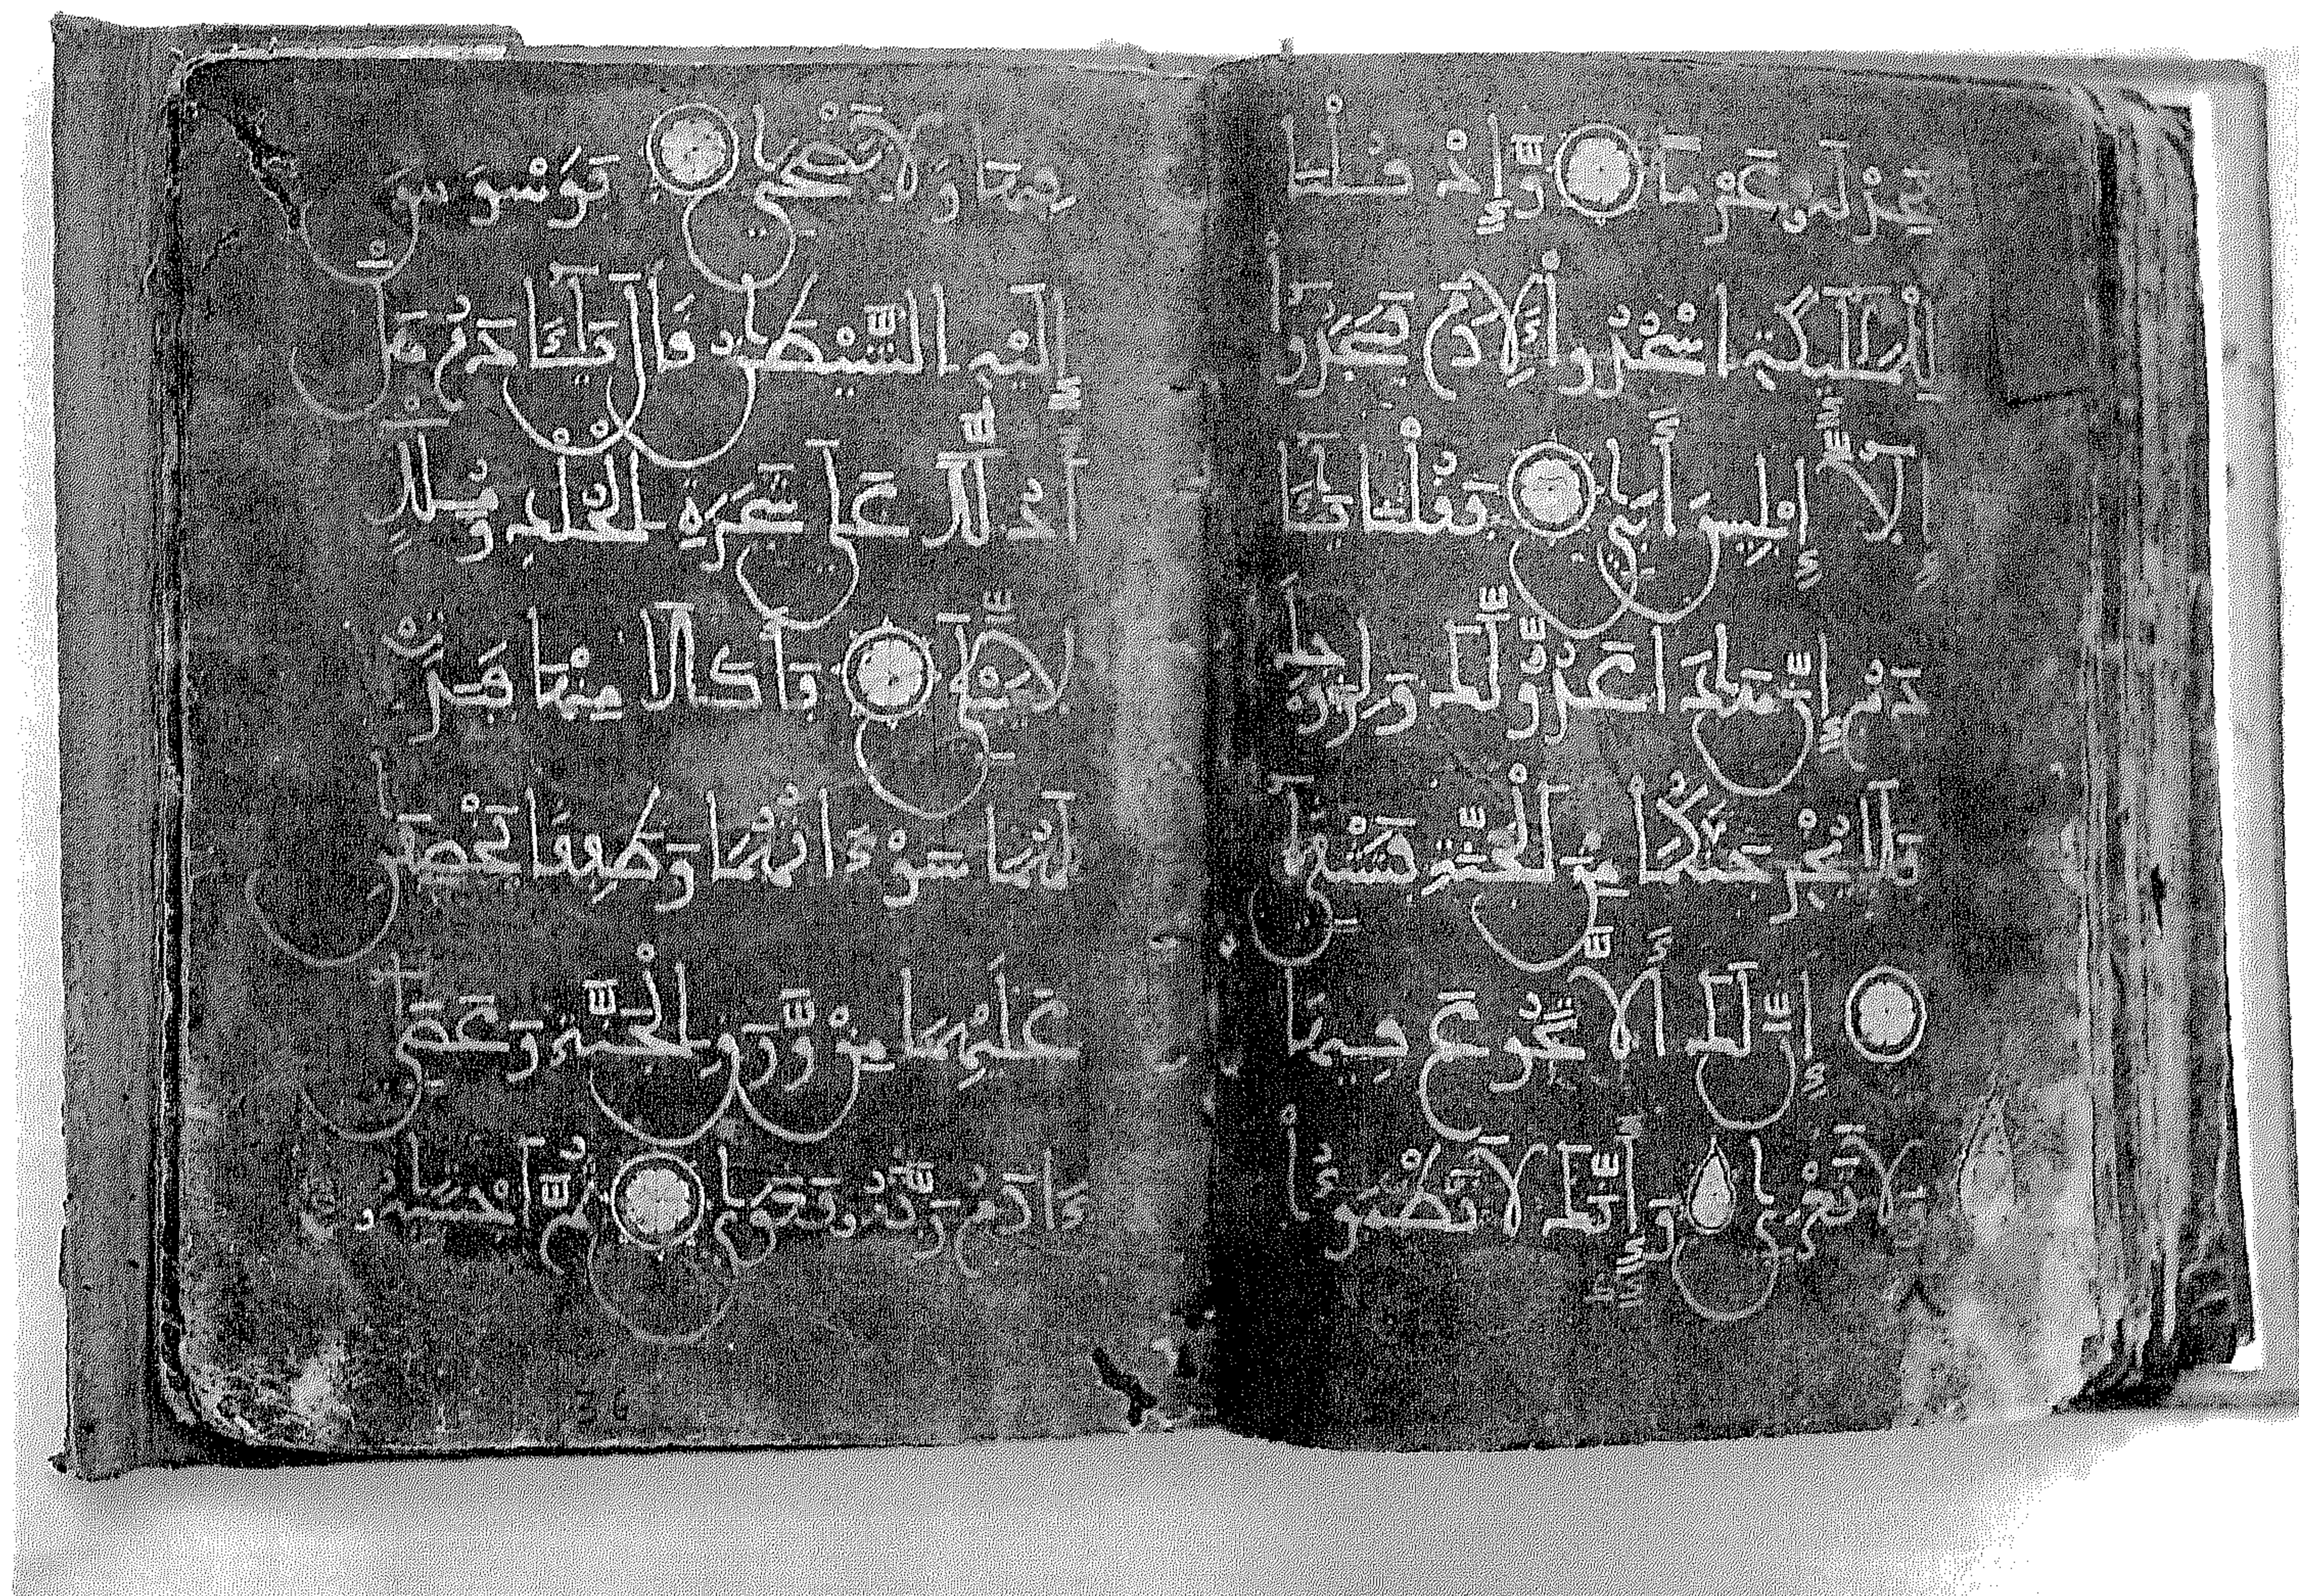 نَجِدْ لَهُ عَزْمًا وَإِذْ قُلْنَا
لِلْمَلَٰئِكَةِ اسْجُدُوا لِأَدَمَ فَسَجَدُوا
إِلَّا إِبْلِيسَ أَبَىٰ فَقُلْنَا يَٰٓـَٔا
دَمُ إِنَّ هَٰذَا عَدُوٌّ لَّكَ وَلِزَوْجِكَ
فَلَا يُخْرِجَنَّكُمَا مِنَ الْجَنَّةِ فَتَشْقَىٰ
إِنَّ لَكَ أَلَّا تَجُوعَ فِيهَا
وَلَا تَعْرَىٰ وَإِنَّكَ لَا تَظْمَؤُا
فِيهَا وَلَا تَضْحَىٰ فَوَسْوَسَ
إِلَيْهِ الشَّيْطَٰنُ قَالَ يَٰٓـَٔادَمُ هَلْ
أَدُلُّكَ عَلَىٰ شَجَرَةِ الْخُلْدِ وَمُلْكٍ
لَّا يَبْلَىٰ فَأَكَلَا مِنْهَا فَبَدَتْ
لَهُمَا سَوْءَاتُهُمَا وَطَفِقَا يَخْصِفَٰنِ
عَلَيْهِمَا مِنْ وَّرَقِ الْجَنَّةِ وَعَصَىٰ
ءَادَمُ رَبَّهُ فَغَوَىٰ ثُمَّ اجْتَبَٰهُ